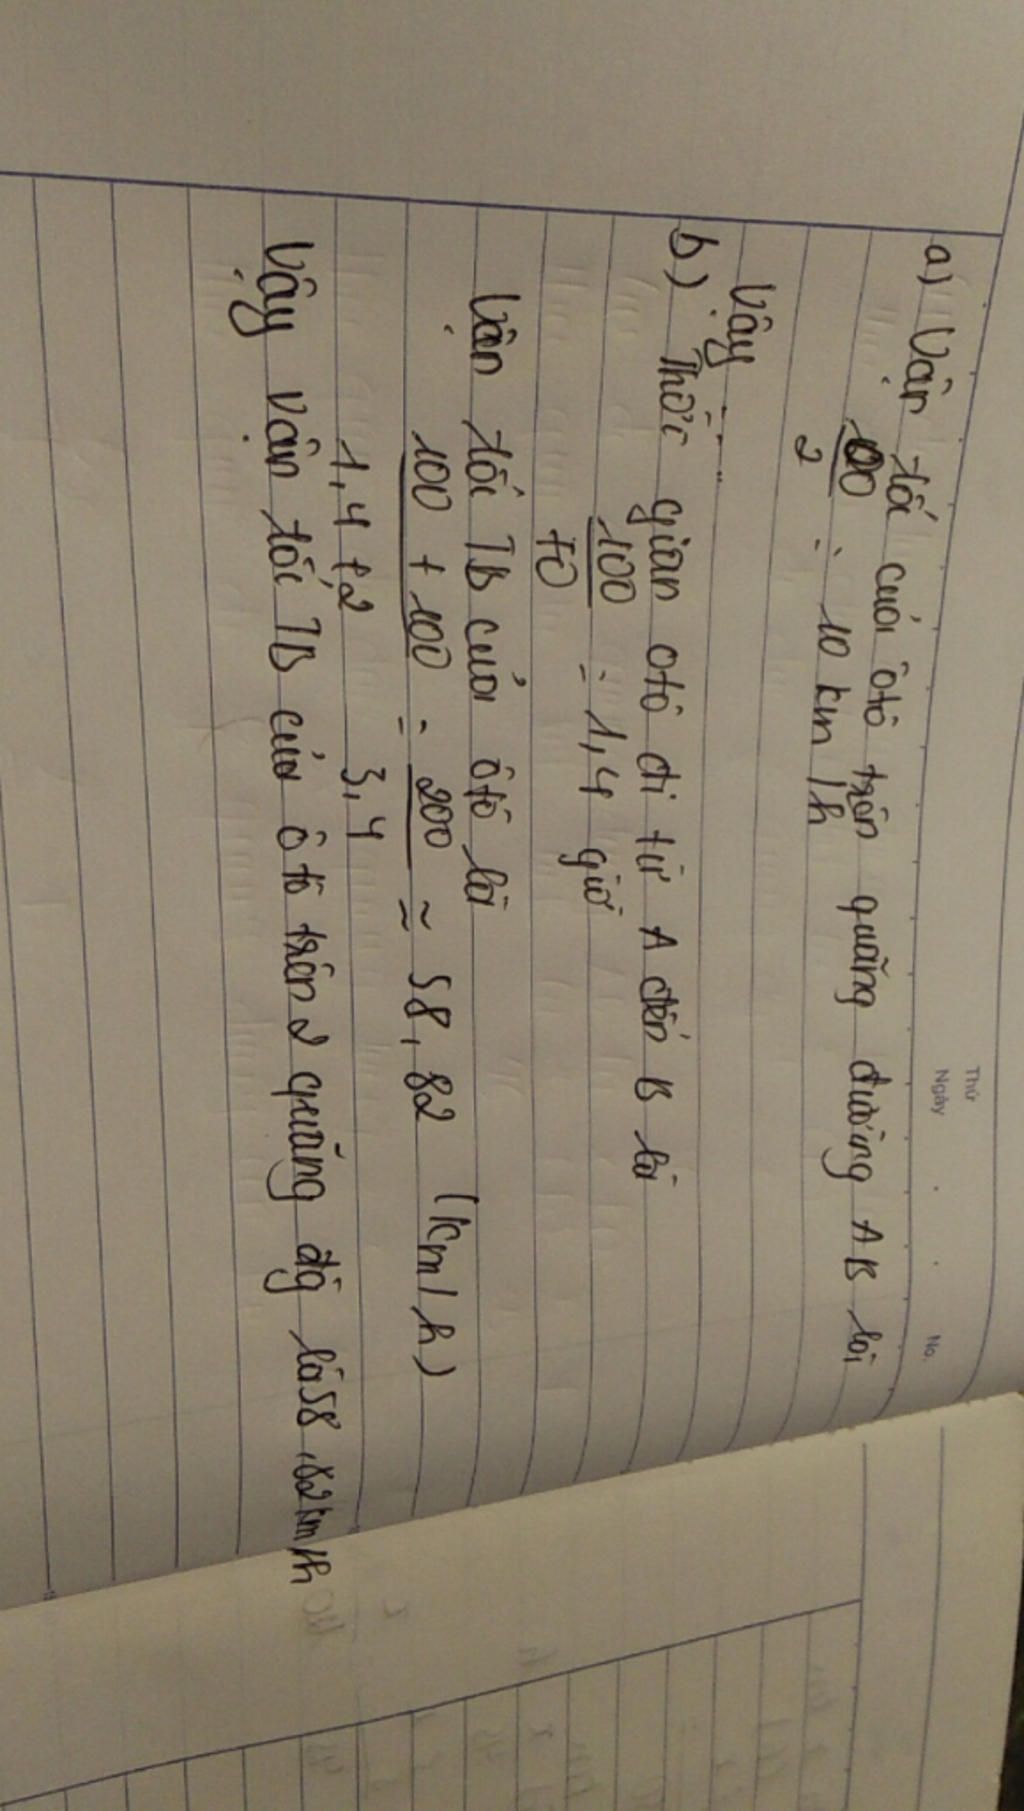 Thứ
Ngày
No.
a) Vận tốc của ôtô trên quãng đường AB là
100 = 10 km/h
2
Vậy ...
b) Thời gian ôtô đi từ A đến B là
100 = 1,4 giờ
70
Vận tốc TB của ôtô là
100 + 100 = 200 ≈ 58,82 (km/h)
1,4 + 2 3,4
Vậy vận tốc TB của ôtô trên 2 quãng đg là 58,82 km/h